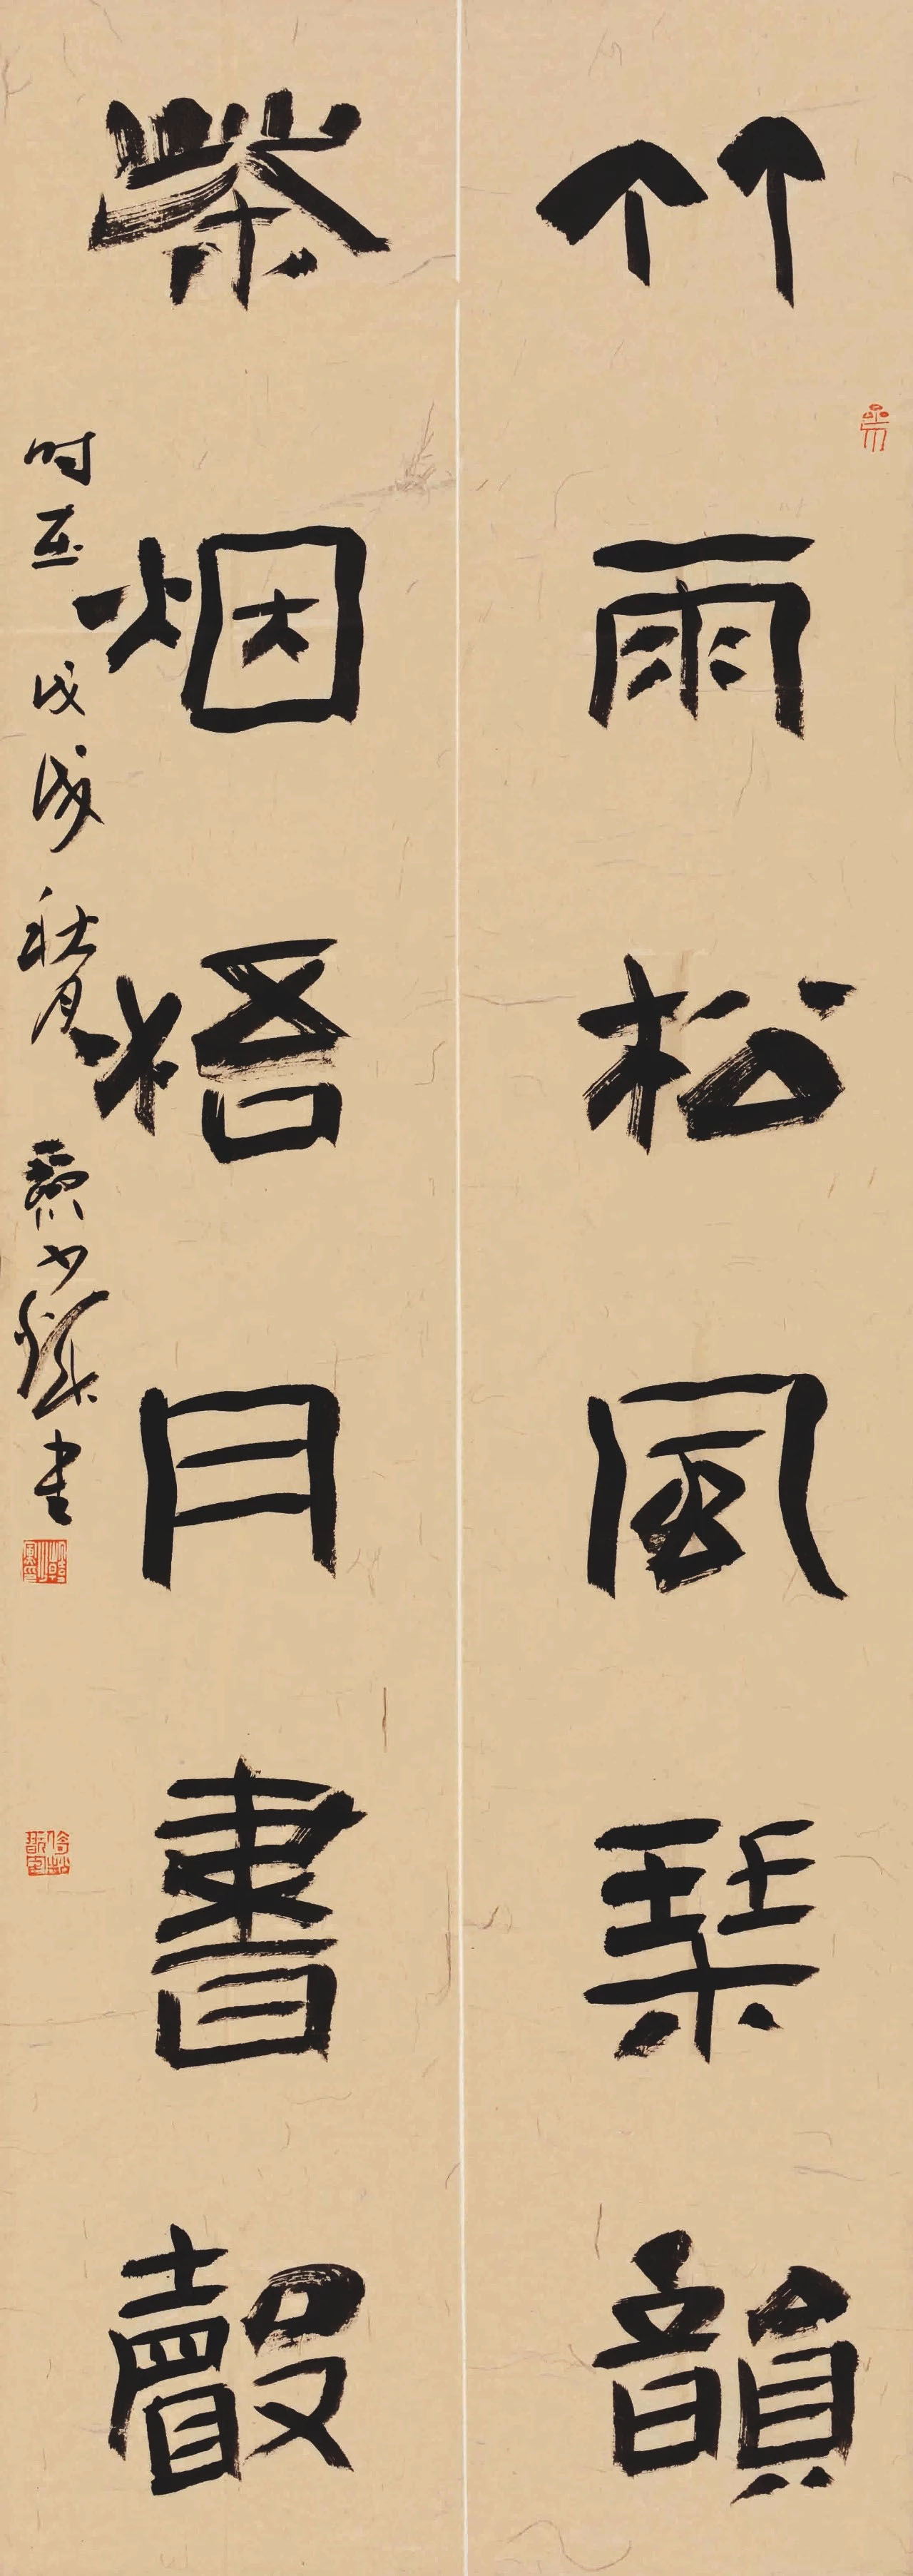 竹雨松風琴韻
茶烟梧月書聲
時在戊戌秋月
書